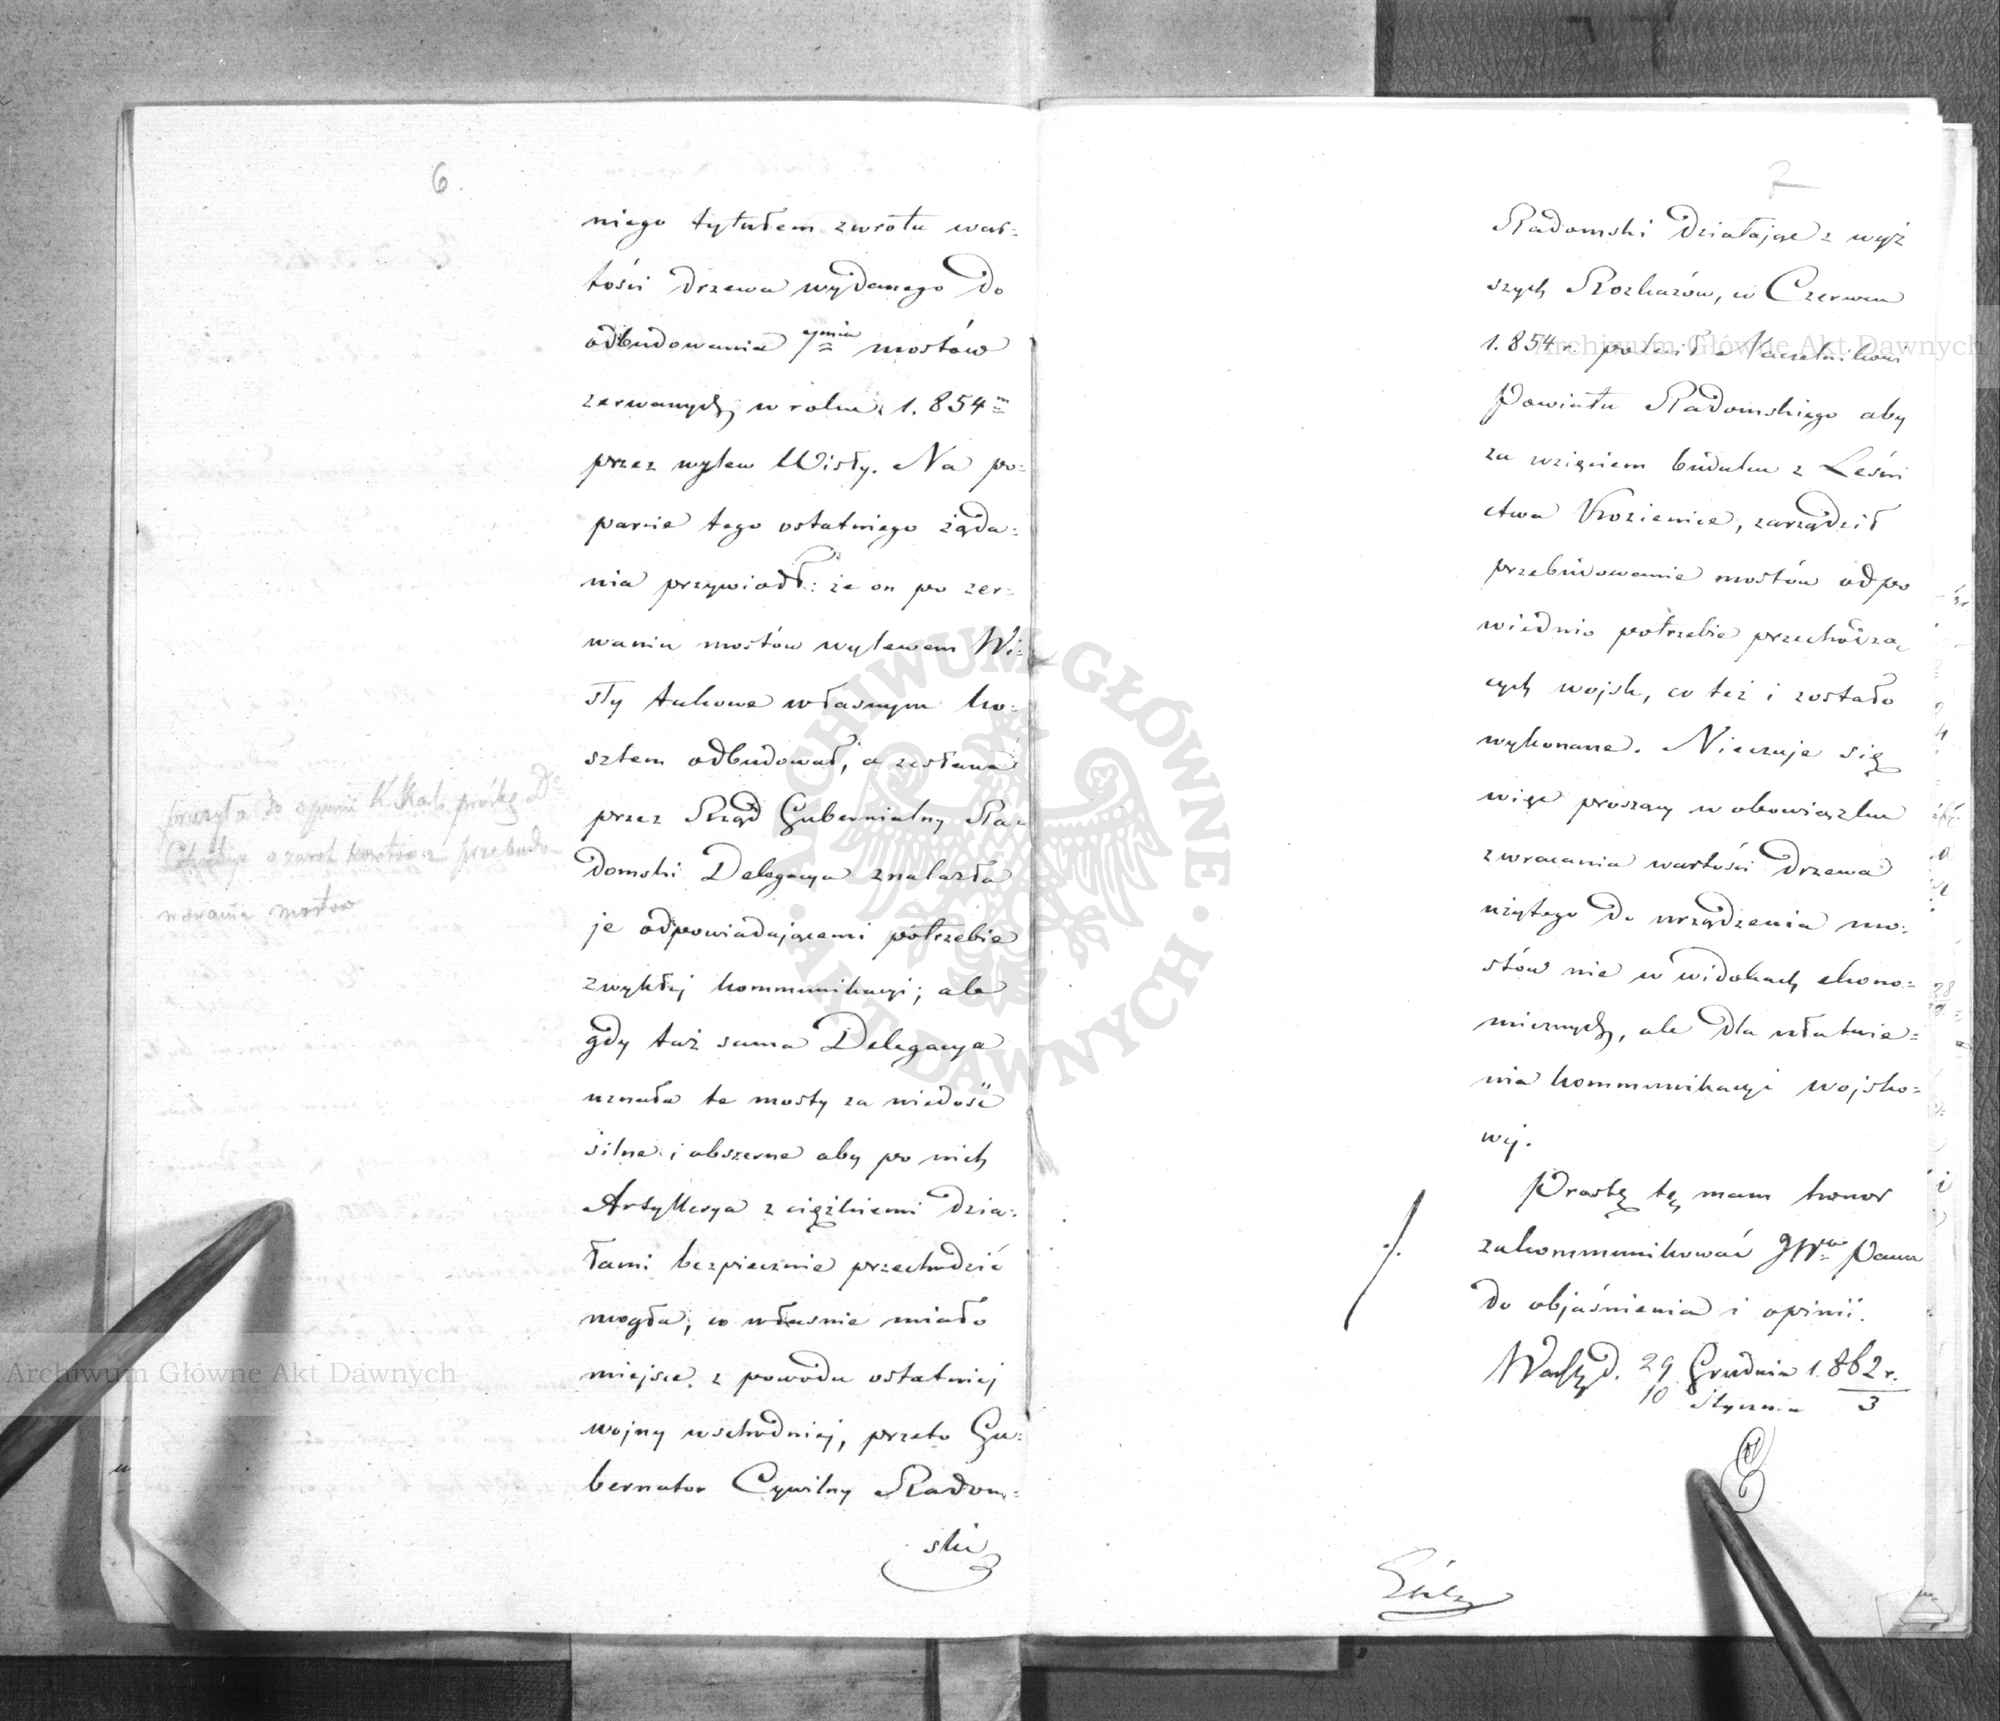 6.
niego tytułem zwrotu war=
tości drzewa wydanego do
odbudowania 7miu mostów
zerwanych w roku 1.854m
przez wylew Wisły. Na po=
parcie tego ostatniego żąda=
nia przywiódł: że on po zer=
waniu mostów wylewem Wi=
sły takowe własnym ko=
sztem odbudował, a zesłana
przez Rząd Gubernialny Ra=
domski Delegacya znalazła
je odpowiadającemi potrzebie
zwykłej kommunikacyi; ale
gdy taż sama Delegacya
uznała te mosty za niedość
silne i obszerne aby po nich
Artyllerya z ciężkiemi dzia=
łami bezpiecznie przechodzić
mogła, co własnie miało
miejsce z powodu ostatniej
wojny wschodniej, przeto Gu=
bernator Cywilny Radom=
ski
do opinii K. Skarb. prośbę
o zwrot kosztów z przebudo
wowania mostów
7
Radomski działając z wyż
szych Rozkazów, w Czerwcu
1.854 r. polecił Naczelnikowi
Powiatu Radomskiego aby
za wzięciem budulcu z Leśni
ctwa Kozienice, zarządził
przebudowanie mostów odpo
wiednio potrzebie przechodzą
cych wojsk, co też i zostało
wykonane. Nieczuje się
więc proszący w obowiązku
zwracania wartości drzewa
użytego do urządzenia mo=
stów nie w widokach ekono=
micznych, ale dla ułatwie=
nia kommunikacyi wojsko=
wej.
Prośbę tę mam honor
zakommunikować JWmu Panu
do objaśnienia i opinii.
Warsz. d. 29 Grudnia 1.862 r.
10 Stycznia 3
Archiwum Główne Akt Dawnych
Archiwum Główne Akt Dawnych
ARCHIWUM GŁÓWNE · AKT DAWNYCH ·